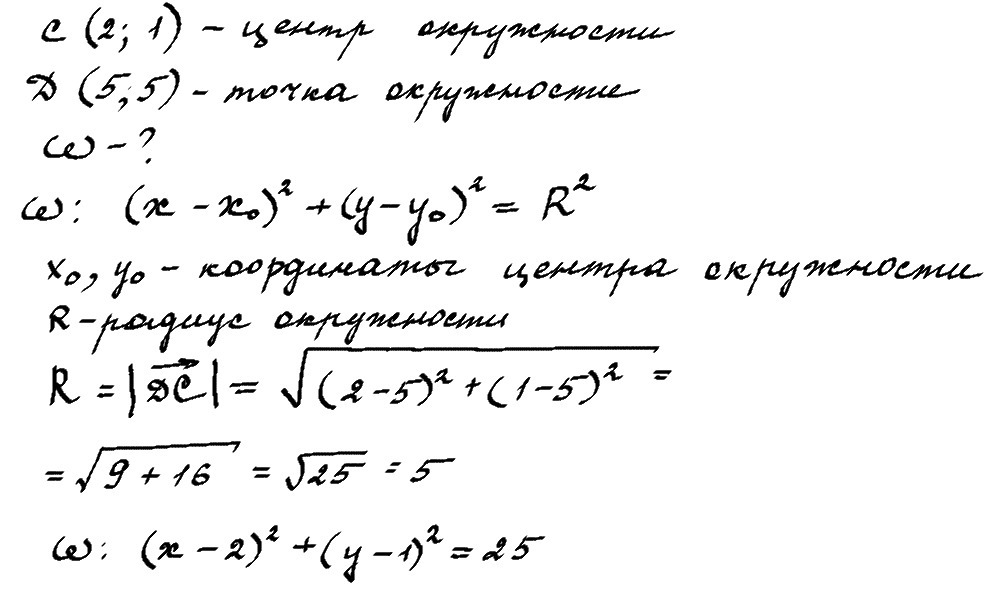 C (2; 1) – центр окружности
D (5; 5) – точка окружности
ω – ?
ω: (x – x₀)² + (y – y₀)² = R²
x₀, y₀ – координаты центра окружности
R – радиус окружности
R = |DC| = √((2 – 5)² + (1 – 5)²) =
= √(9 + 16) = √25 = 5
ω: (x – 2)² + (y – 1)² = 25